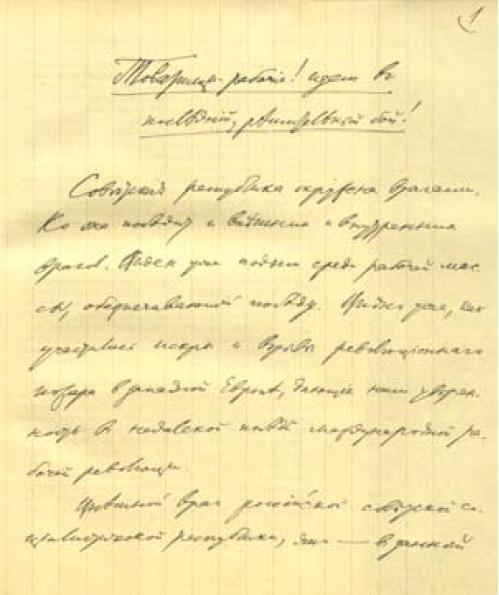 1
Товарищи-рабочіе! идем в
послѣдній, рѣшительный бой!
Совѣтская республика окружена врагами.
Но она побѣдит и внѣшних и внутренних
врагов. Виден уже подъем среди рабочей мас-
сы, обезпечивающий побѣду. Видно уже, как
участились искры и взрывы революціоннаго
пожара в западной Европѣ, дающие нам уверен-
ность в недалекой побѣдѣ международной ра-
бочей революции.
Внѣшний враг российской совѣтской со-
циалистической республики, это — в данный